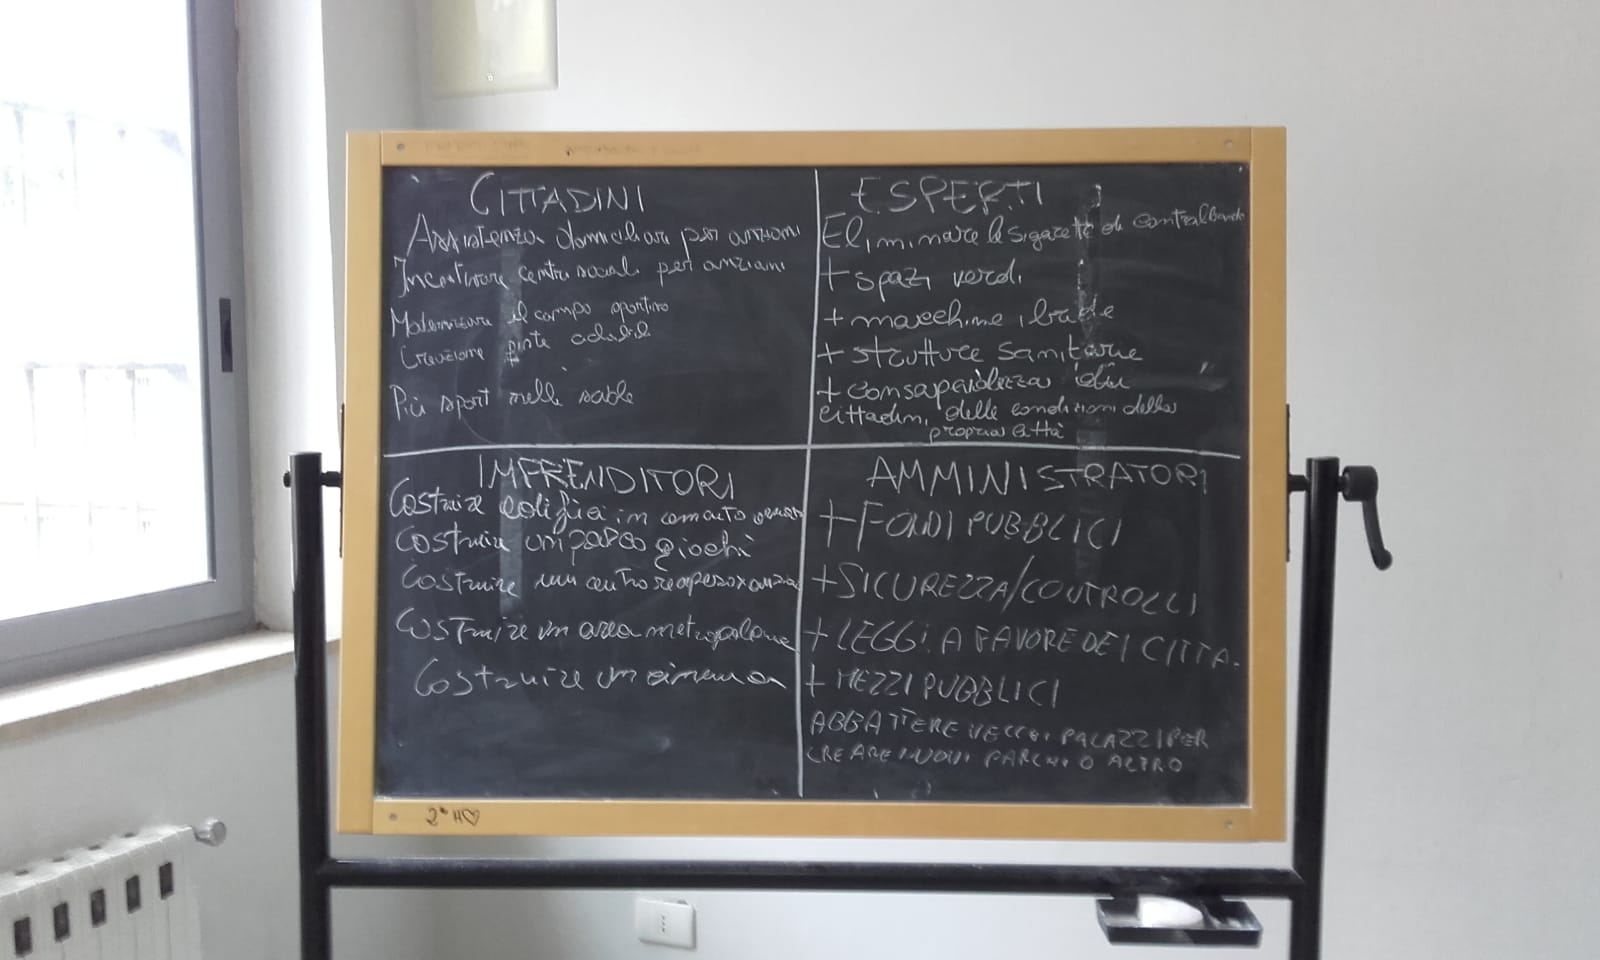 CITTADINI
Assistenza domiciliare per anziani
Incentivare centri sociali per anziani
Modernizzare il campo sportivo
Creazione piste ciclabili
Più sport nelle scuole
ESPERTI
Eliminare le sigarette di contrabbando
+ spazi verdi
+ macchine ibride
+ strutture sanitarie
+ consapevolezza dei
cittadini delle condizioni della
propria città
IMPRENDITORI
Costruire edifici in cemento
Costruire un parco giochi
Costruire un centro recupero x anziani
Costruire un area metropolana
Costruire un cinema
AMMINISTRATORI
+ FONDI PUBBLICI
+ SICUREZZA/CONTROLLI
+ LEGGI A FAVORE DEI CITTA.
+ MEZZI PUBBLICI
ABBATTERE VECCHI PALAZZI PER
CREARE NUOVI PARCHI O ALTRO
2° H♡